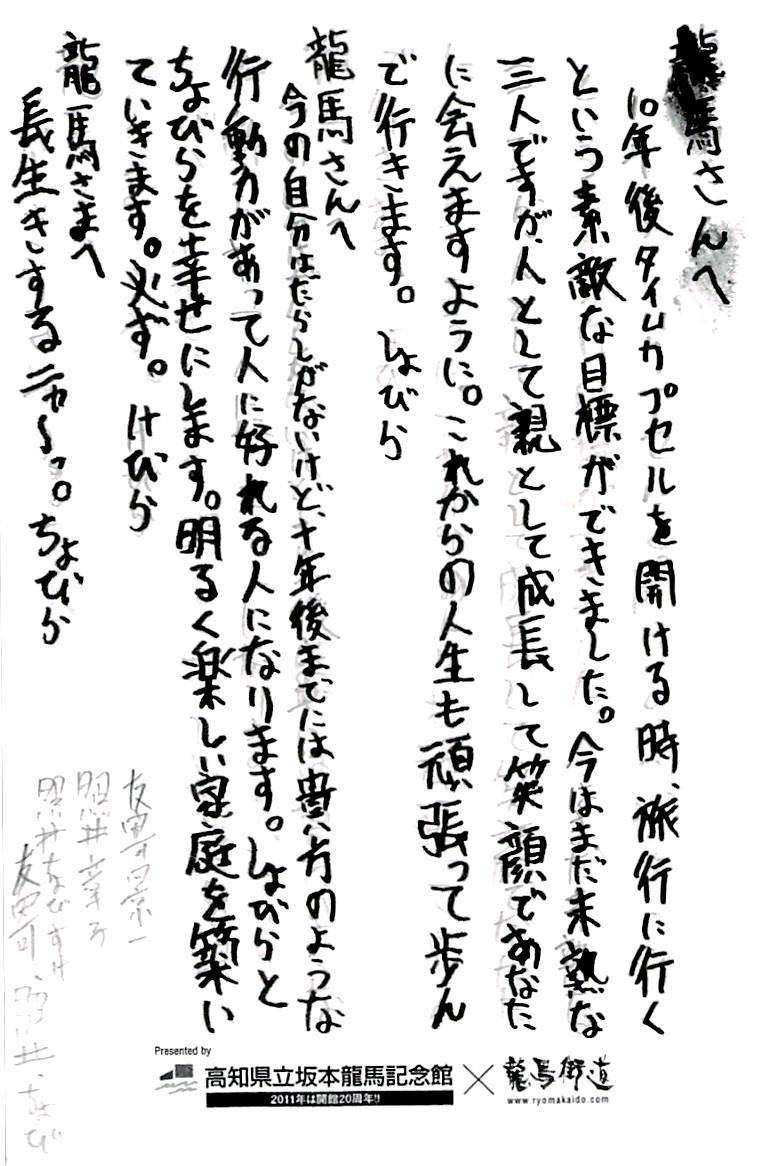 龍馬さんへ
10年後タイムカプセルを開ける時、旅行に行く
という素敵な目標ができました。今はまだ未熟な
三人ですが、人として親として成長して笑顔であなた
に会えますように。これからの人生も頑張って歩ん
で行きます。 しょびら
龍馬さんへ
今の自分はだらしがないけど、十年後までには貴方のような
行動力があって人に好れる人になります。しょびらと
ちょびらを幸せにします。明るく楽しい家庭を築い
ていきます。必ず。 けびら
龍馬さまへ
長生きするニャ〜っ。ちょびら
Presented by
高知県立坂本龍馬記念館
2011年は開館20周年!!
×
龍馬街道
www.ryomakaido.com